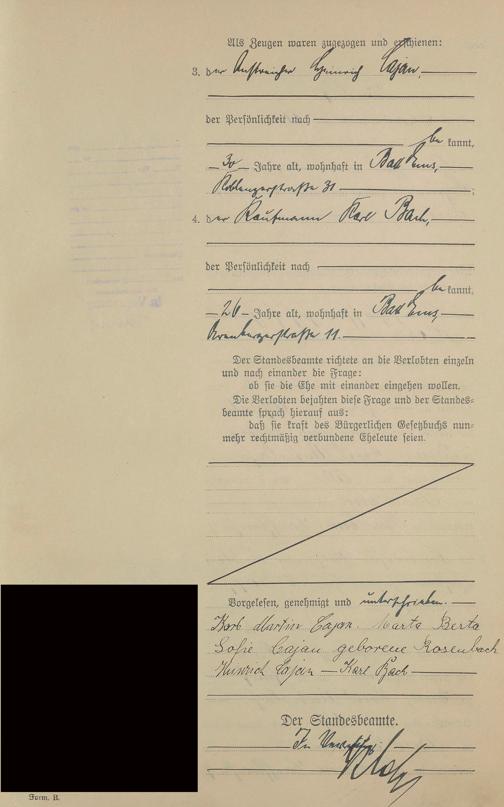 Als Zeugen waren zugezogen und erschienen:
3. der Anstreicher Heinrich Cajan
der Persönlichkeit nach
bekannt,
30 Jahre alt, wohnhaft in Bad Ems,
Koblenzerstraße 31;
4. der Kaufmann Karl Bach,
der Persönlichkeit nach
bekannt,
26 Jahre alt, wohnhaft in Bad Ems,
11.
Der Standesbeamte richtete an die Verlobten einzeln
und nach einander die Frage:
ob sie die Ehe mit einander eingehen wollen.
Die Verlobten bejahten diese Frage und der Standes=
beamte sprach hierauf aus:
daß sie kraft des Bürgerlichen Gesetzbuchs nun=
mehr rechtmäßig verbundene Eheleute seien.
Vorgelesen, genehmigt und unterschrieben.
Karl Martin Cajan. Marta Berta
Sofie Cajan geborene Rosenbach
Heinrich Cajan — Karl Bach
Der Standesbeamte.
In Vertretung
Form. B.